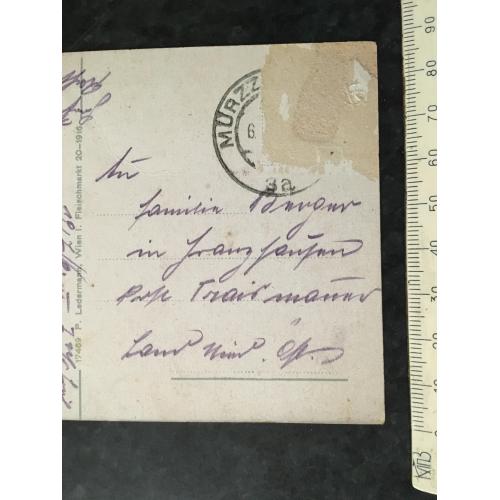 MÜRZZ
6.
3a
An
Familie Berger
in Franzhausen
Post Traismauer
Land Nied. Öst.
17469 P. Ledermann, Wien I. Fleischmarkt 20-1916
90
80
70
60
50
40
30
20
10
0